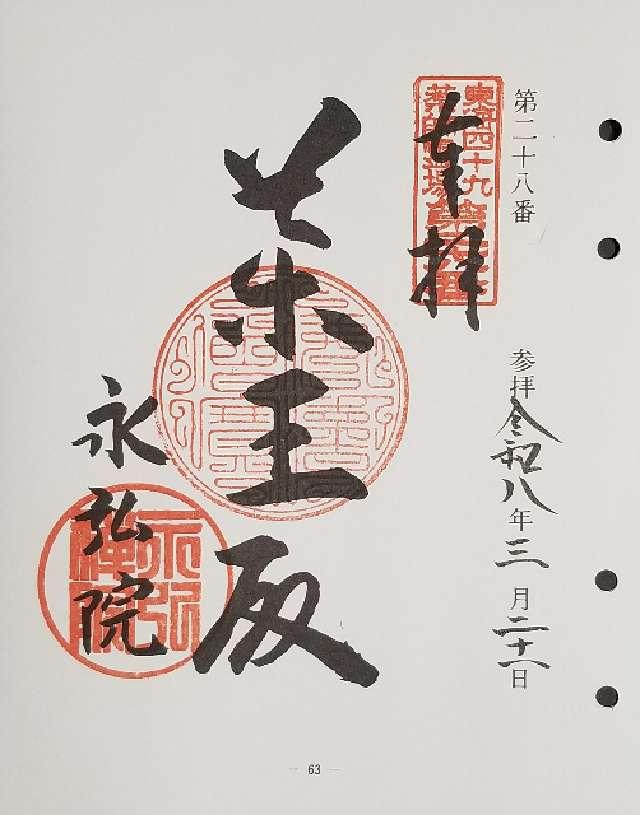 第二十八番
参拝令和八年三月二十一日
東海四十九
薬師霊場第二十八番
奉拝
薬王殿
永弘院
63